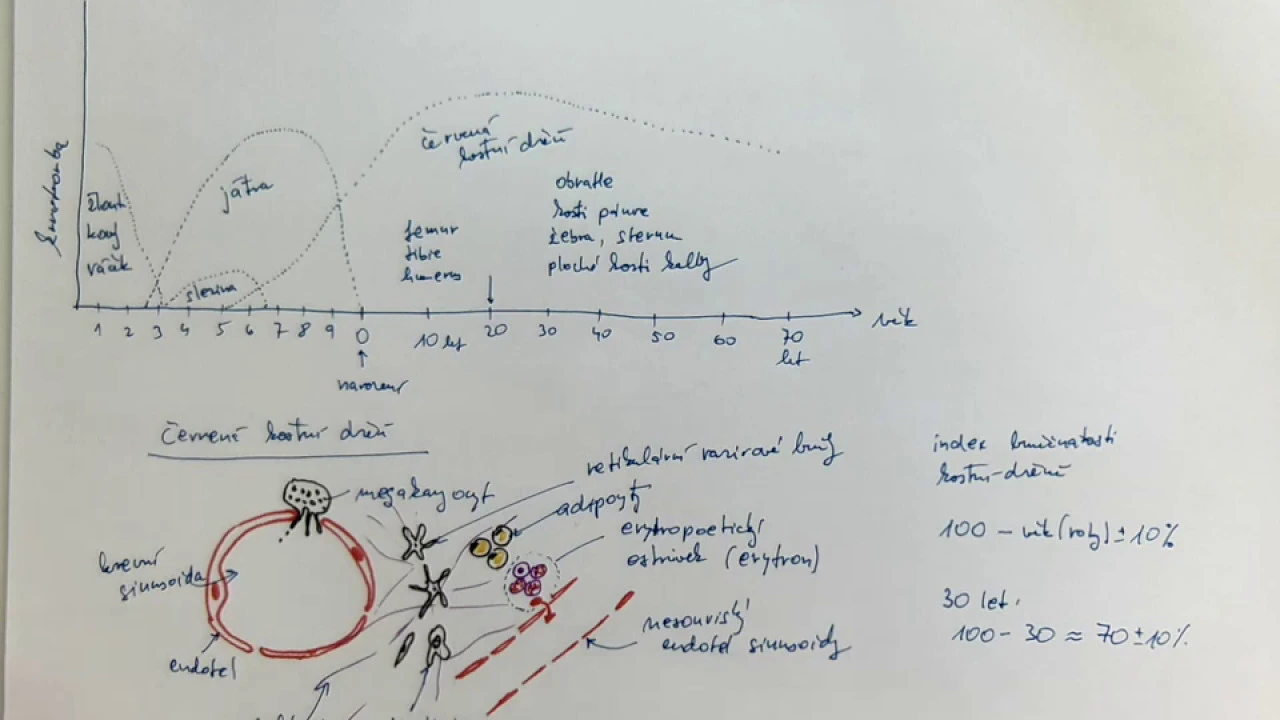 krvetvorba
žlout
kový
váček
játra
slezina
červená
kostní dřeň
femur
tibie
humerus
obratle
kosti pánve
žebra, sternum
ploché kosti lebky
1 2 3 4 5 6 7 8 9 0 10 let 20 30 40 50 60 70
let
věk
narození
červená kostní dřeň
megakaryocyt
krevní
sinusoida
endotel
retikulární vazivové buňky
adipocyty
erytropoetický
ostrůvek (erytron)
nesouvislý
endotel sinusoidy
index buněčnatosti
kostní dřeně
100 - věk (roky) ± 10%
30 let.
100 - 30 ≈ 70 ± 10%